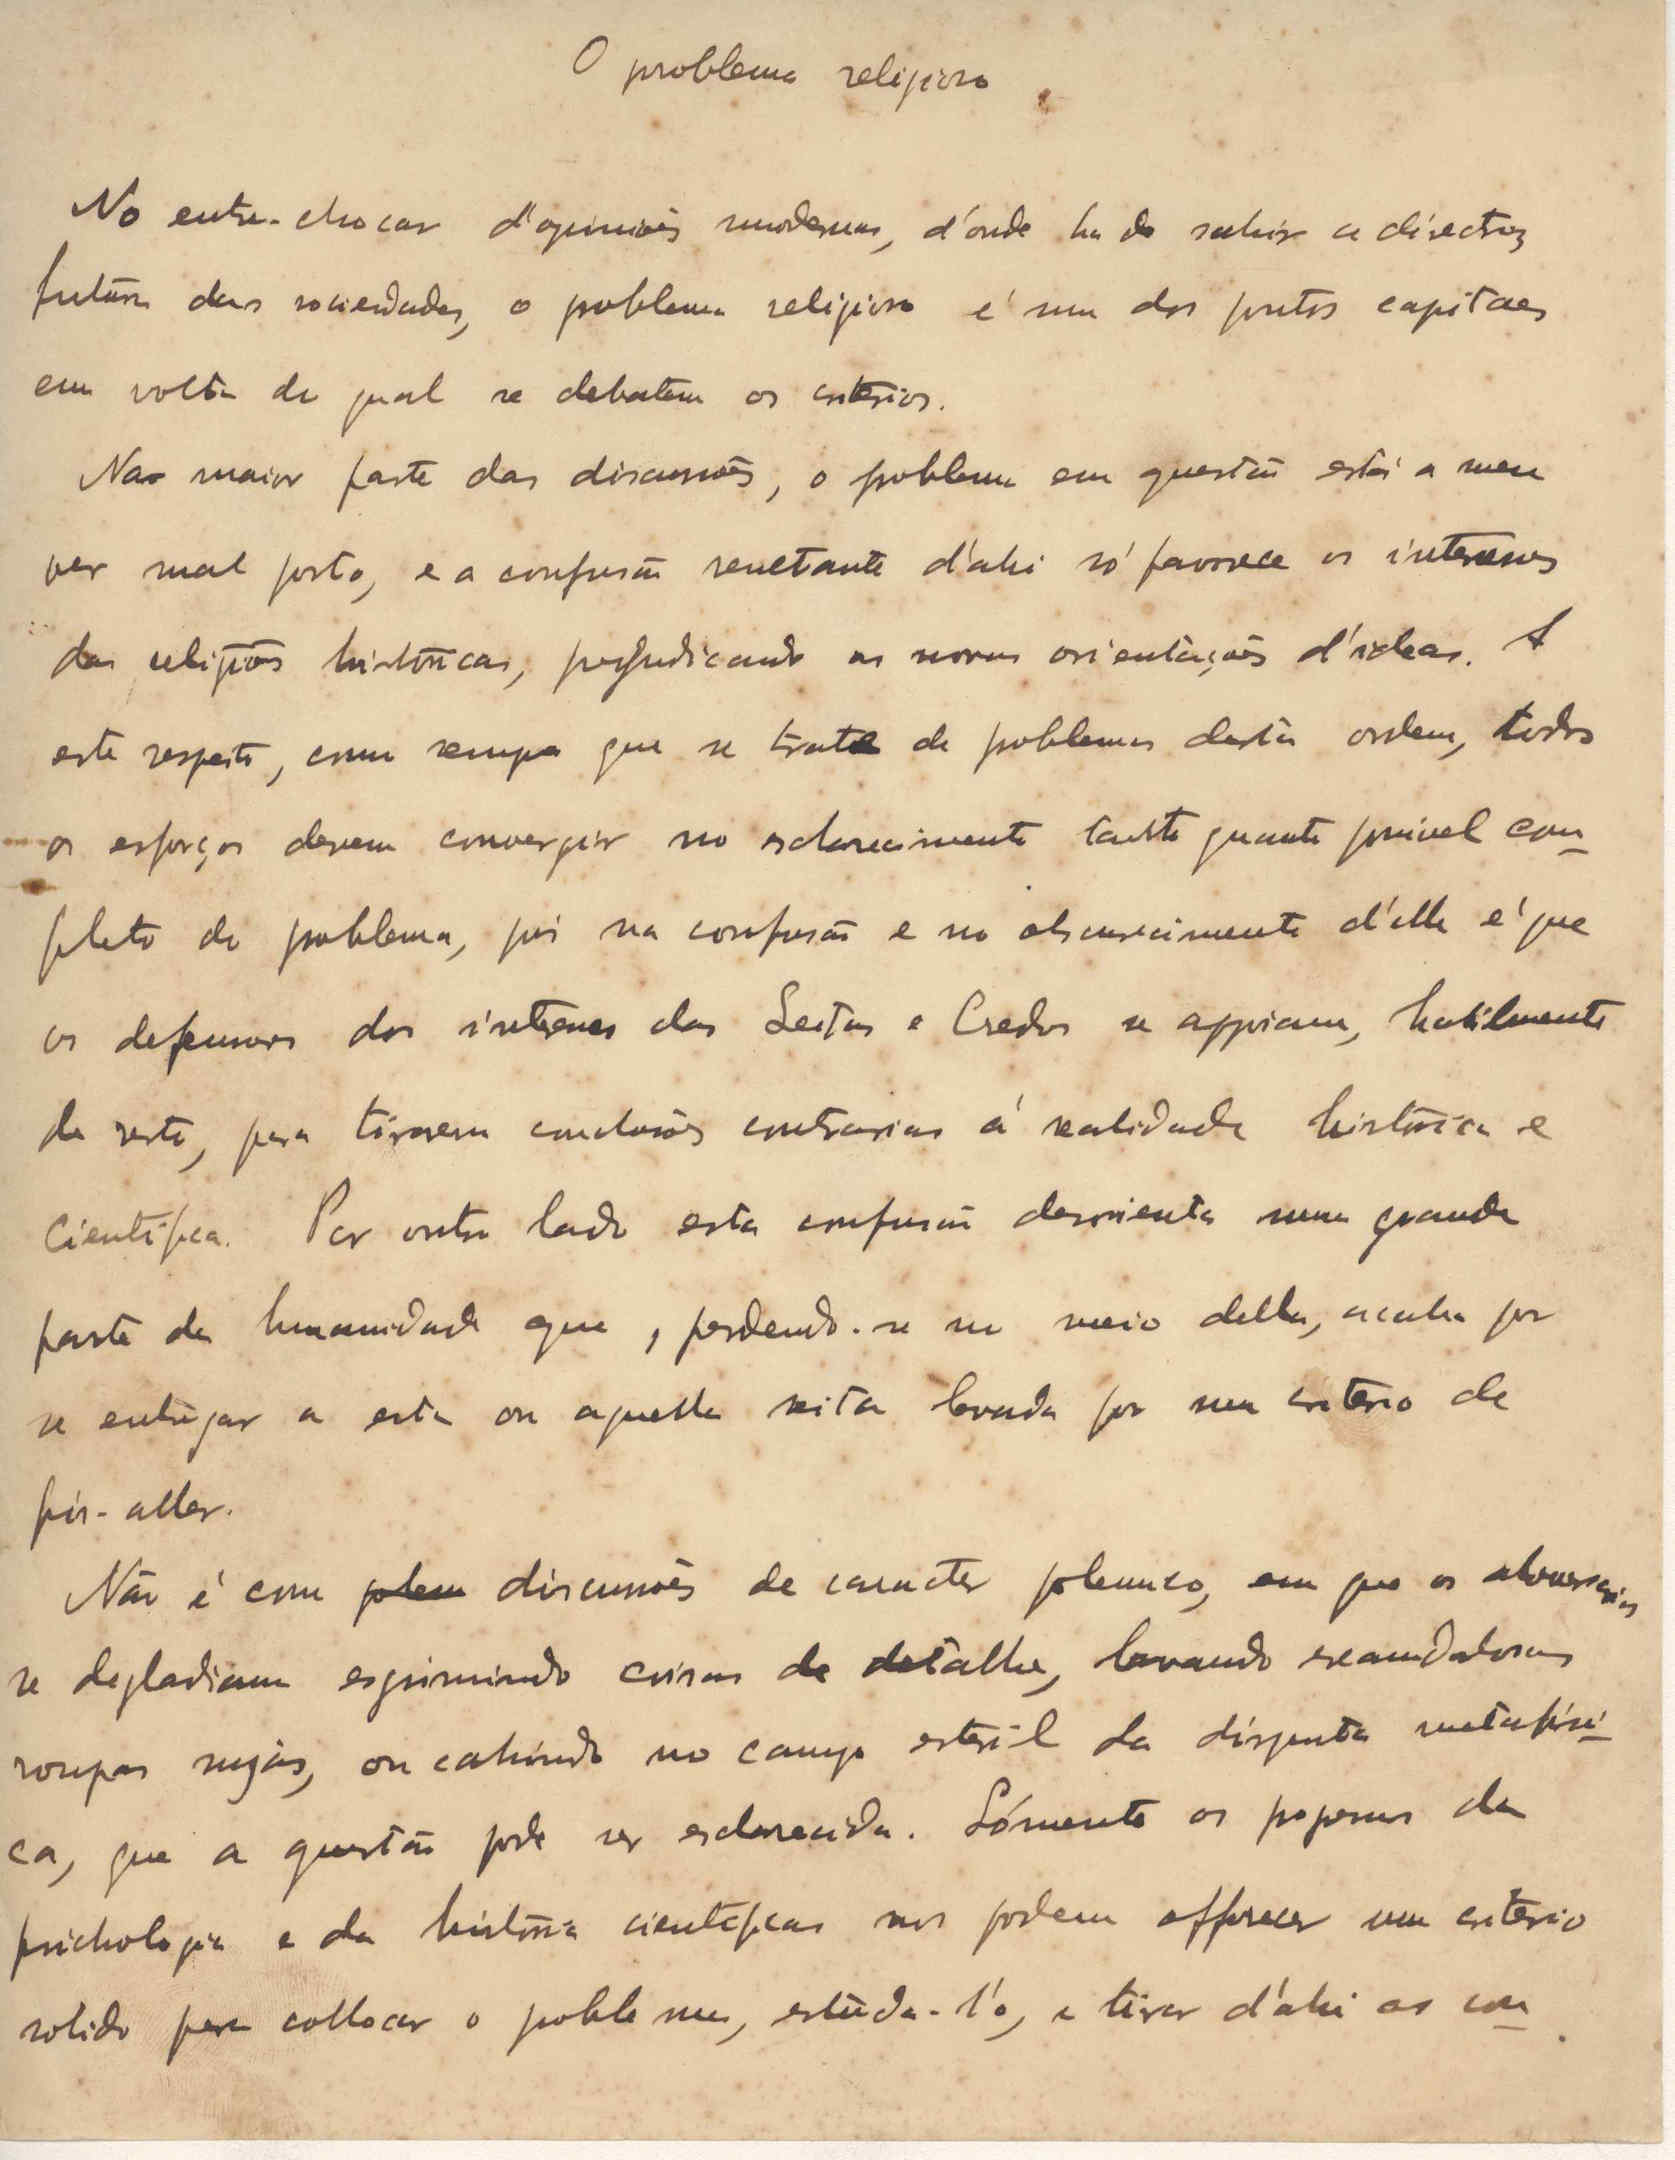 O problema religioso
No entre-chocar d'opiniões modernas, d'onde ha de sahir a directriz
futura das sociedades, o problema religioso é um dos pontos capitaes
em volta do qual se debatem os criterios.
Na maior parte das discussões, o problema em questão está a meu
ver mal posto, e a confusão resultante d'ahi só favorece os interesses
das religiões históricas, prejudicando as novas orientações d'ideas. A
este respeito, como sempre que se trate de problemas desta ordem, todos
os esforços devem convergir no esclarecimento tanto quanto possivel com-
pleto do problema, pois na confusão e no obscurecimento d'elle é que
os defensores dos interesses das Seitas e Credos se appoiam, habilmente
de resto, para tirarem conclusões contrarias á realidade histórica e
cientifica. Por outro lado esta confusão desorienta uma grande
parte da humanidade que, perdendo-se no meio della, acaba por
se entregar a esta ou aquella seita levada por um criterio de
pis-aller.
Não é com polem discussões de caracter polemico, em que os adversarios
se degladiam esgrimindo coisas de detalhe, lavando escandalosas
roupas sujas, ou cahindo no campo esteril da disputa metafisi-
ca, que a questão pode ser esclarecida. Sómente os progressos da
psichologia e da história cientificas nos podem offerecer um criterio
solido para collocar o problema, estuda-l'o, e tirar d'ahi as con-